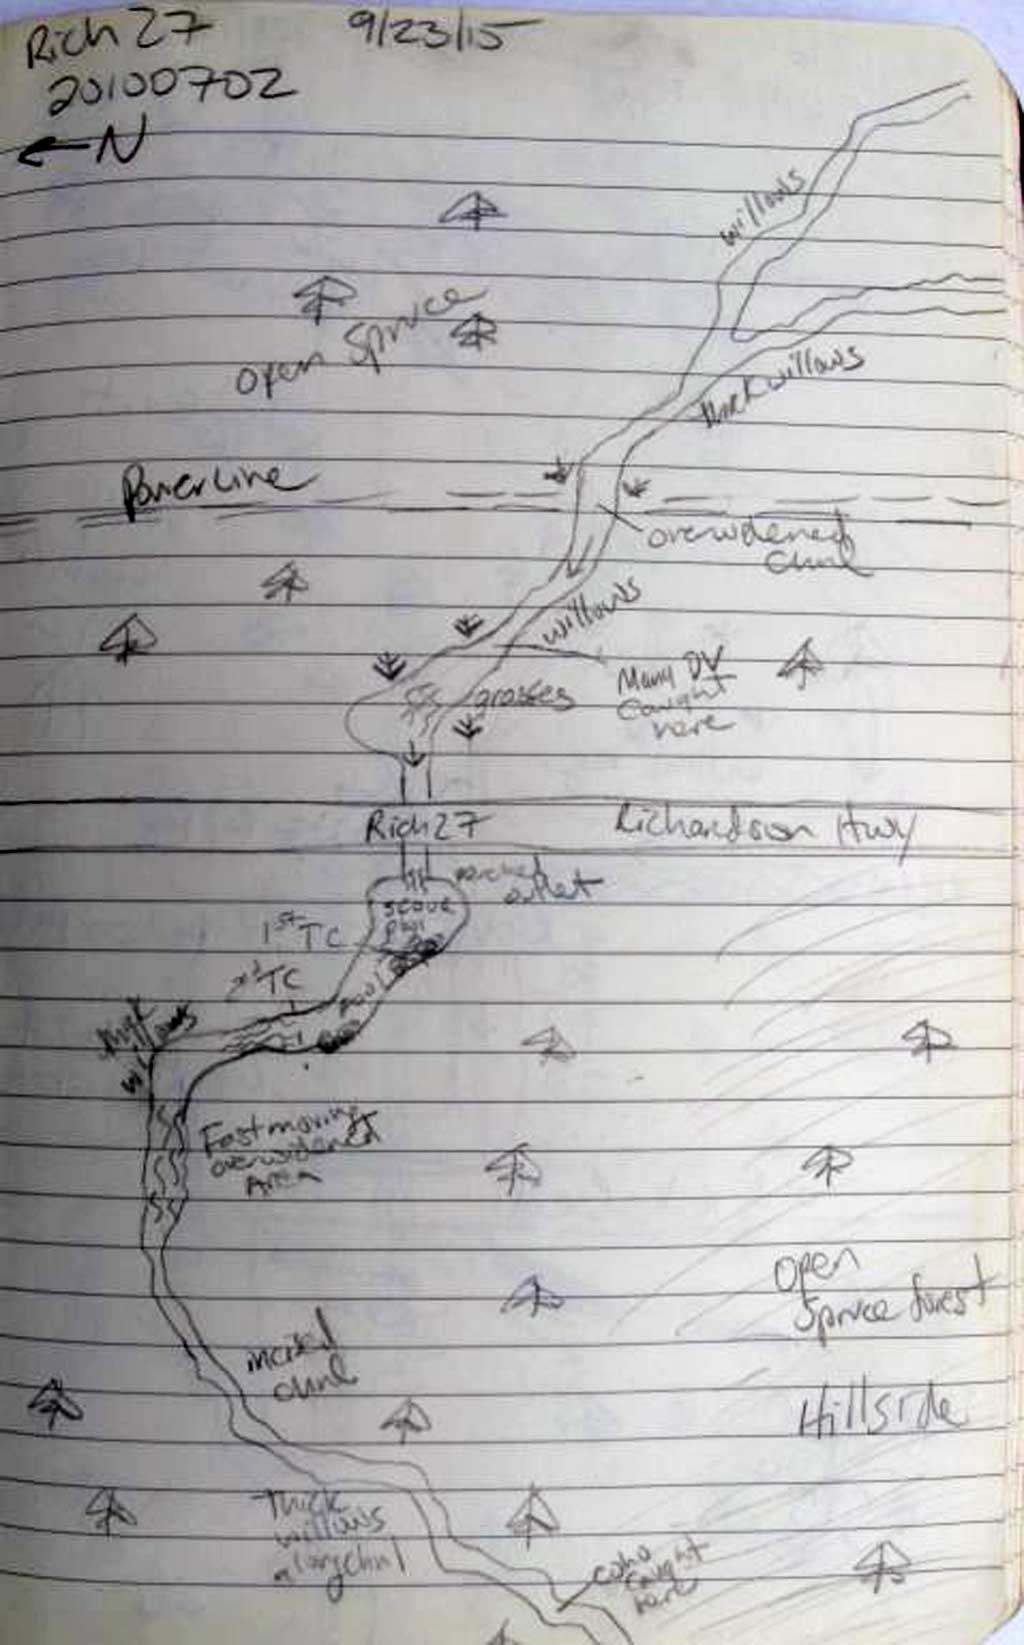 Rich 27 9/23/15
20100702
←N
willows
open spruce
thick willows
Powerline
overwidened
chnl
willows
Many DV
caught
here
grasses
Rich 27
Richardson Hwy
perched
outlet
scour
pool
1st TC
2nd TC
pool
thick
willows
Fast moving
overwidened
Area
Open
Spruce forest
incised
chnl
Hillside
Thick
willows
along chnl
coho
caught
here